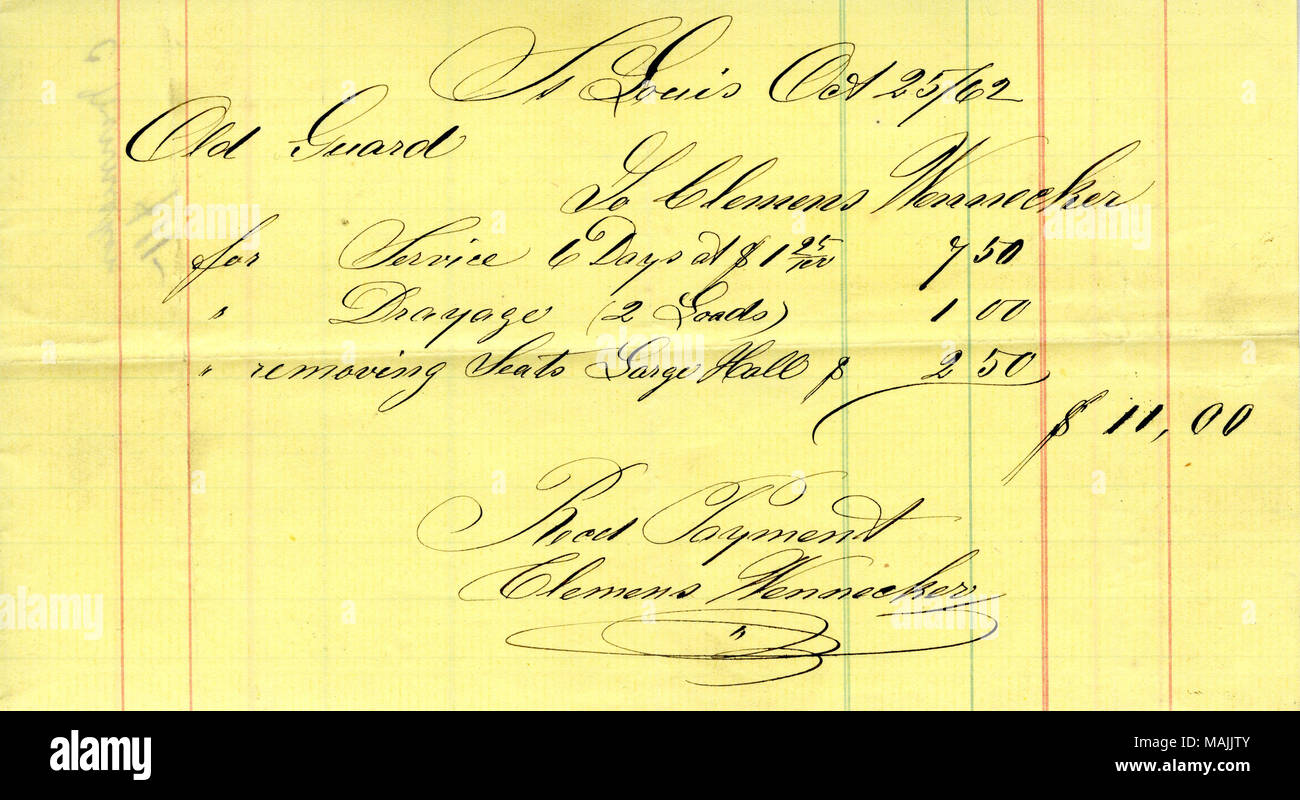 St Louis Oct 25/62
Old Guard
To Clemens Wennecker
for Service 6 Days at $ 1 25/100 7 50
" Drayage (2 Loads) 1 00
" removing Seats Large Hall $ 2 50
$ 11,00
Recd Payment
Clemens Wennecker
"
alamy
Image ID: MAJJTY
www.alamy.com